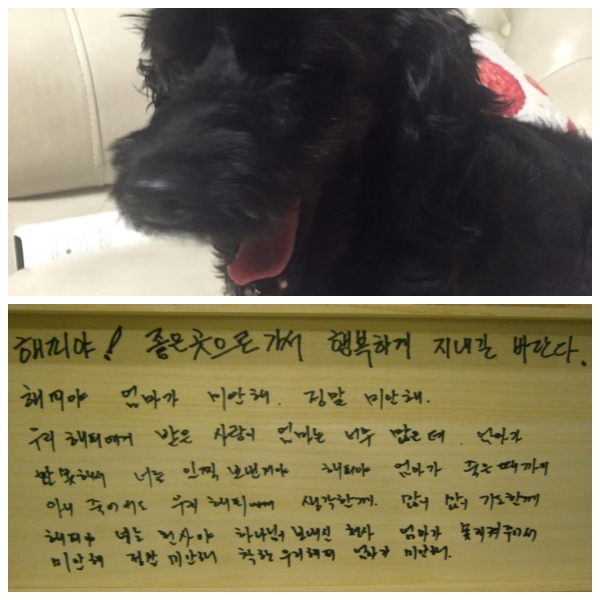 해피야! 좋은곳으로 가서 행복하게 지내길 바란다.
해피야 엄마가 미안해. 정말 미안해.
우리 해피에게 받은 사랑이 엄마는 너무 많은데. 엄마가
잘못해서 너를 일찍 보낸거야 해피야 엄마가 죽는 때까지
아니 죽어서도 우리 해피 생각할께. 많이 많이 기도할께
해피야 너는 천사야 하나님이 보내신 천사 엄마가 못지켜주어서
미안해 정말 미안해 착한 우리해피 엄마가 미안해.